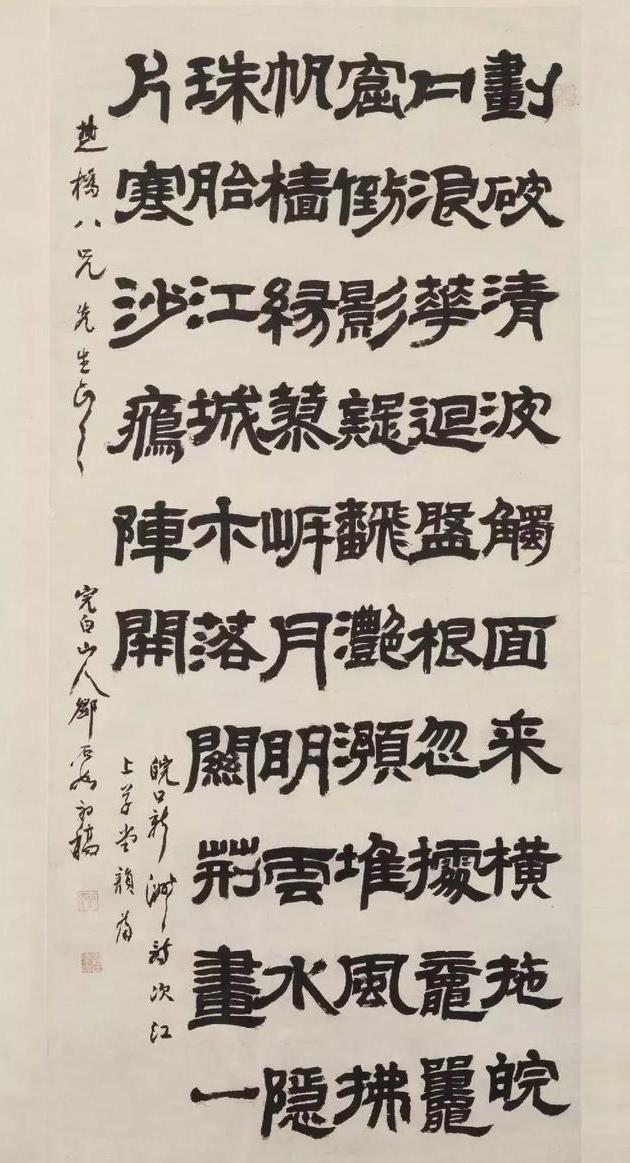 劃破清波觸面来橫拖皖
口浪華迴盤根忽據黿鼉
窟倒影疑飜灧澦堆風拂
帆檣緣岸月明雲水隱
珠胎江城木落關荊畫一
片寒沙鴈陣開
皖口新洲詩次江
上草堂韻為
楚橋八兄先生正之
完白山人鄧石如初稿